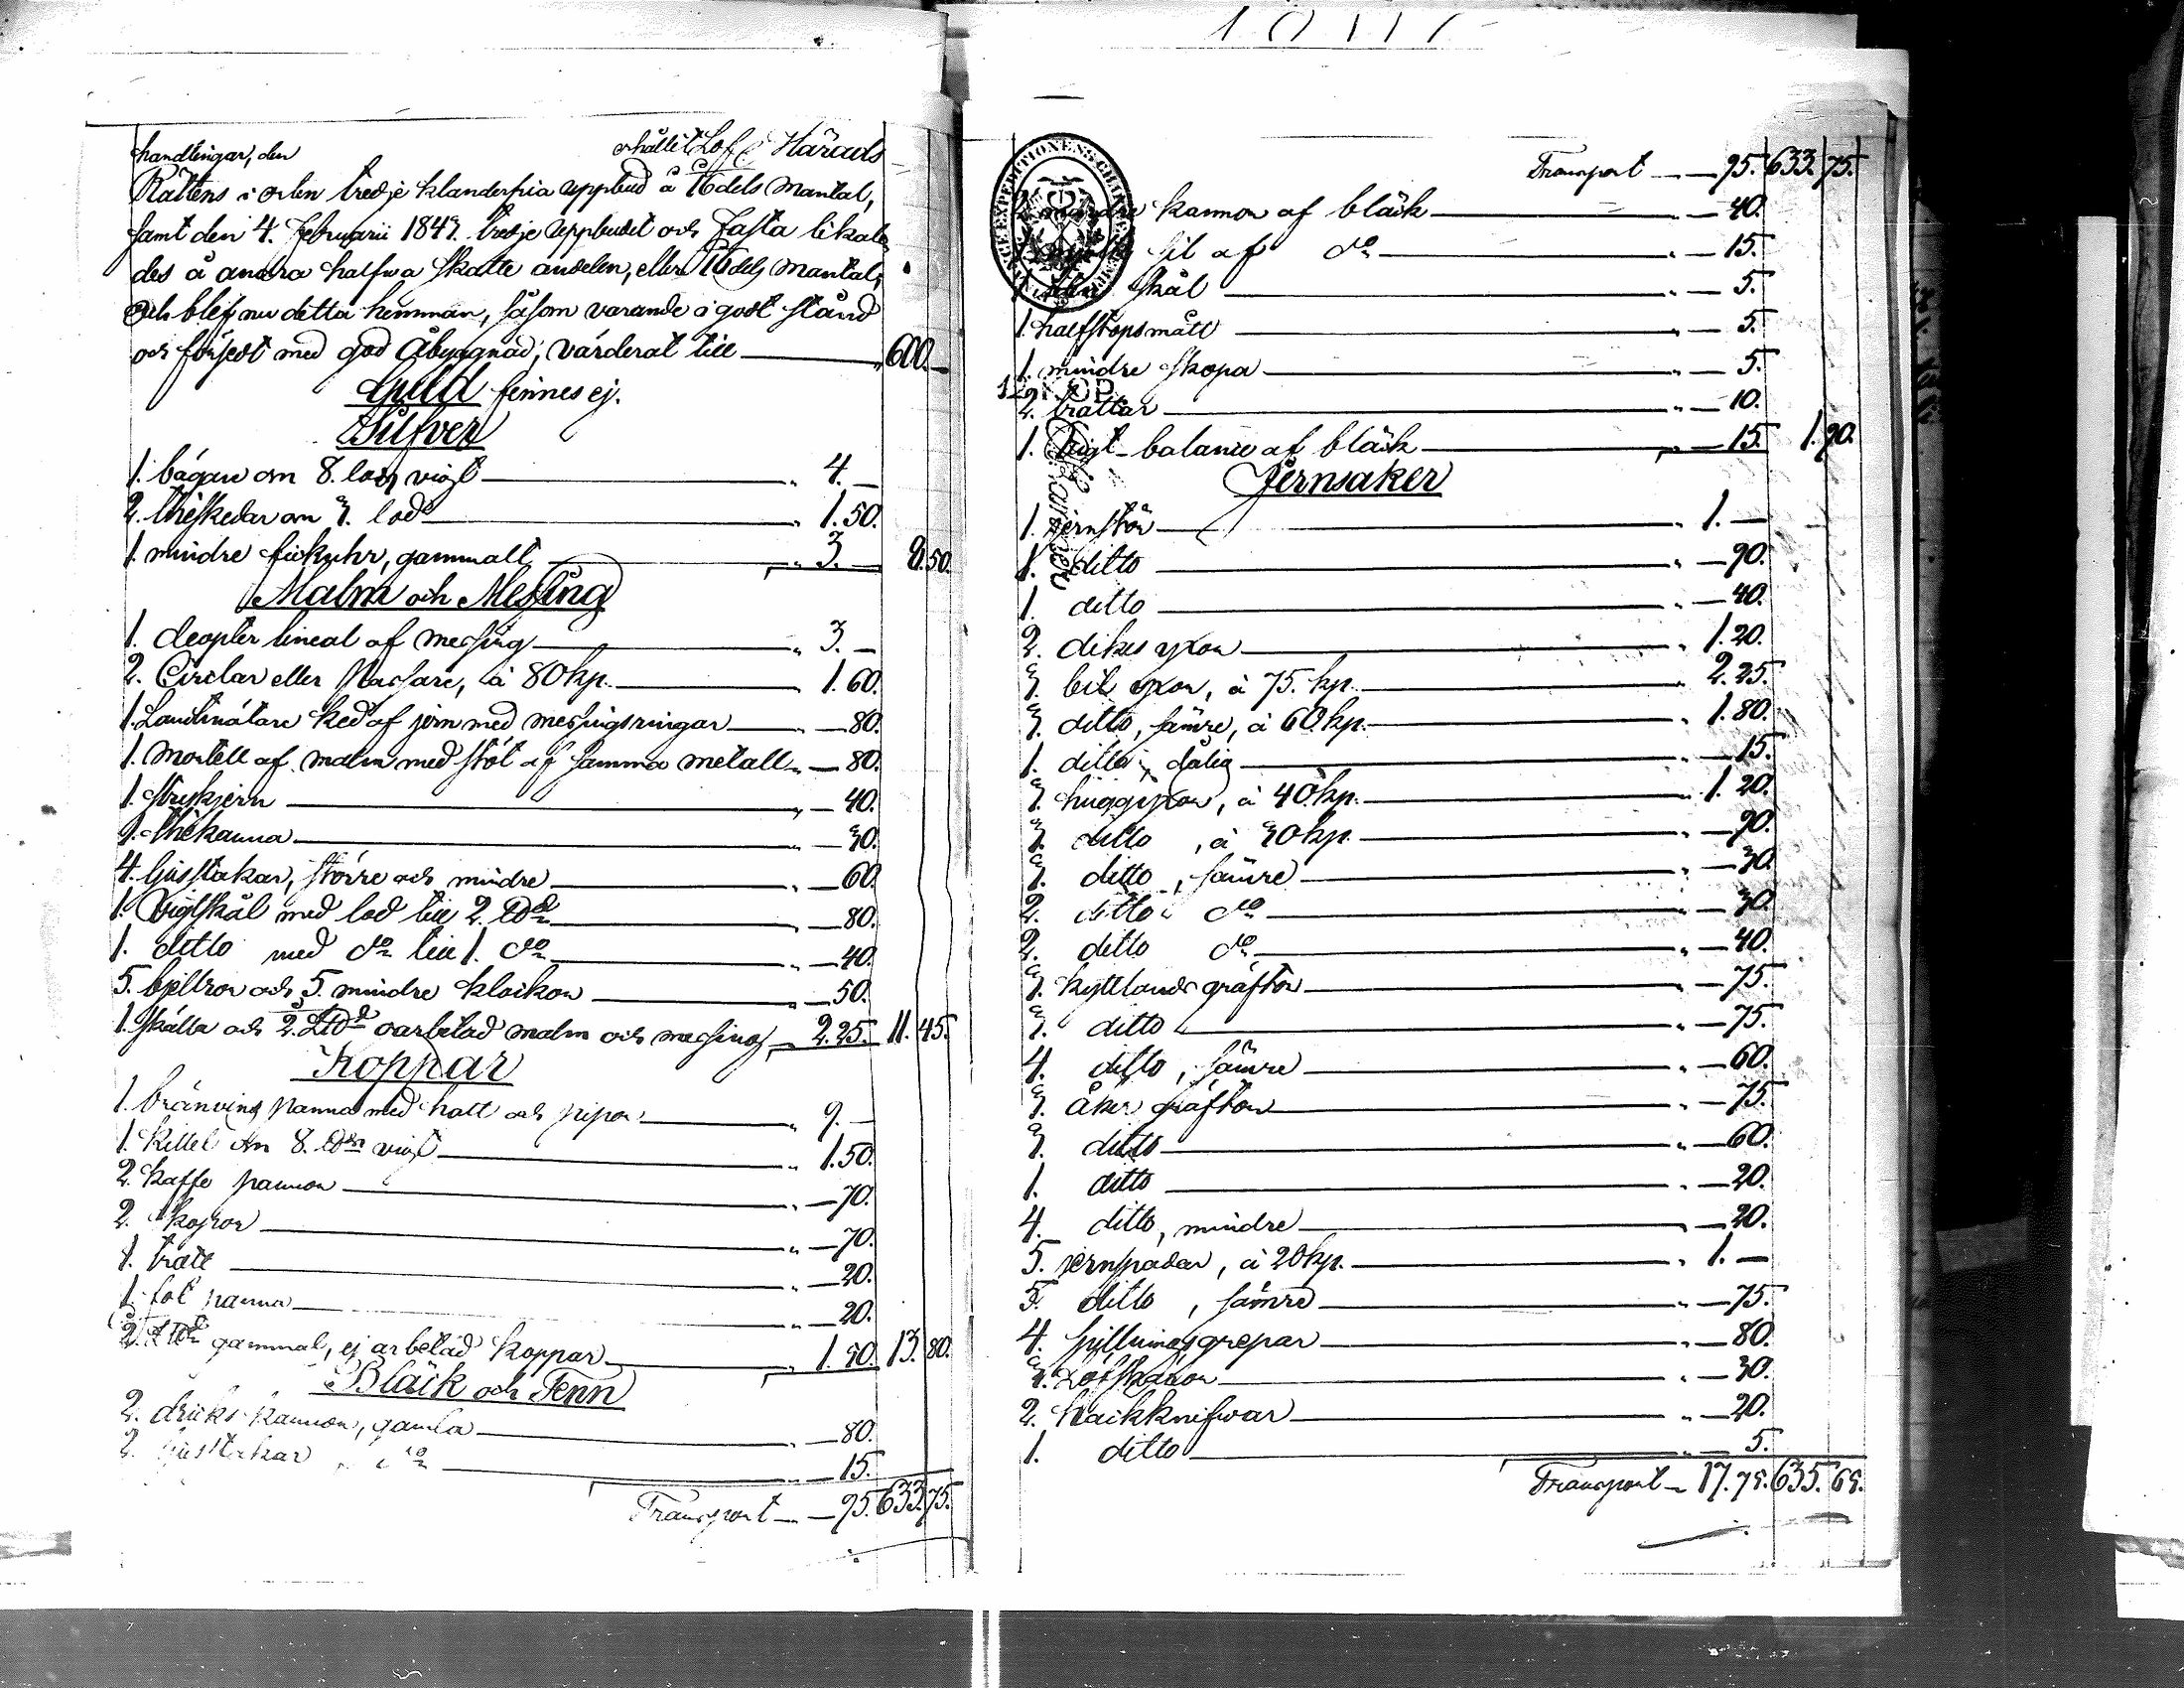 handlingar, den erhållit Lofl. Härads
Rättens i orten tredje klanderfria uppbud å 5/16 dels Mantal,
samt den 4. Februarii 1843. tredje uppbudet och Fasta likale
des å andra halfwa skatte andelen, eller 5/16 dels Mantal,
och blef nu detta hemman, såsom varande i godt stånd
och försedt med god Åbyggnad, värderat till 600.
Guld finnes ej.
Silfver
1. bägare om 8. lods vigt 4. —
2. théskedar om 3. lod 1. 50.
1. mindre fickuhr, gammalt 3. — 8. 50.
Malm och Messing
1. deopter lineal af messing 3. —
2. Circlar eller Passare, à 80 kp. 1. 60.
1. Landtmätare ked af jern med messingsringar — 80.
1. Mortell af malm med stöt af samma metall — 80.
1. Strykjern — 40.
1. thékanna — 30.
4. ljusstakar, större och mindre — 60.
1. Vigtskål med lod till 2. ℔d — 80.
1. ditto med do till 1. do — 40.
5. bjellror och 5. mindre klockor — 50.
1. skälla och 2. L℔d oarbetad malm och messing 2. 25. 11. 45.
Koppar
1. bränvins panna med hatt och pipor 9. —
1. Kittel om 8. ℔ds vigt 1. 50.
2. Kaffe pannor — 70.
2. skopor — 70.
1. tratt — 20.
1. fot panna — 20.
2. L℔d gammal, ej arbetad koppar 1. 50. 13. 80.
Bläck och Tenn
2. dricks kannor, gamla — 80.
2. ljusstakar do — 15.
Transport — 95. 633. 75.
Transport — 95. 633. 75.
2. mindre kannor af bläck — 40.
1. sil af do — 15.
1. skål — 5.
1. halfstopsmått — 5.
1. mindre skopa — 5.
2. trattar — 10.
1. vigt-balance af bläck — 15. 1. 90.
Jernsaker
1. jernstör 1. —
1. ditto — 90.
1. ditto — 40.
2. dikes yxor 1. 20.
3. bil yxor, à 75. kp. 2. 25.
3. ditto, sämre, à 60 kp. 1. 80.
1. ditto, dålig — 15.
3. huggyxor, à 40 kp. 1. 20.
3. ditto, à 30 kp. — 90.
3. ditto, sämre — 30.
2. ditto do — 30.
2. ditto do — 40.
3. kyttlands gräftor — 75.
3. ditto — 75.
4. ditto, sämre — 60.
3. åker gräftor — 75.
3. ditto — 60.
1. ditto — 20.
4. ditto, mindre — 20.
5. jernspadar, à 20 kp. 1. —
5. ditto, sämre — 75.
4. spillningsgrepar — 80.
3. Löfskäror — 30.
2. hackknifwar — 20.
1. ditto — 5.
Transport — 17. 75. 635. 65.